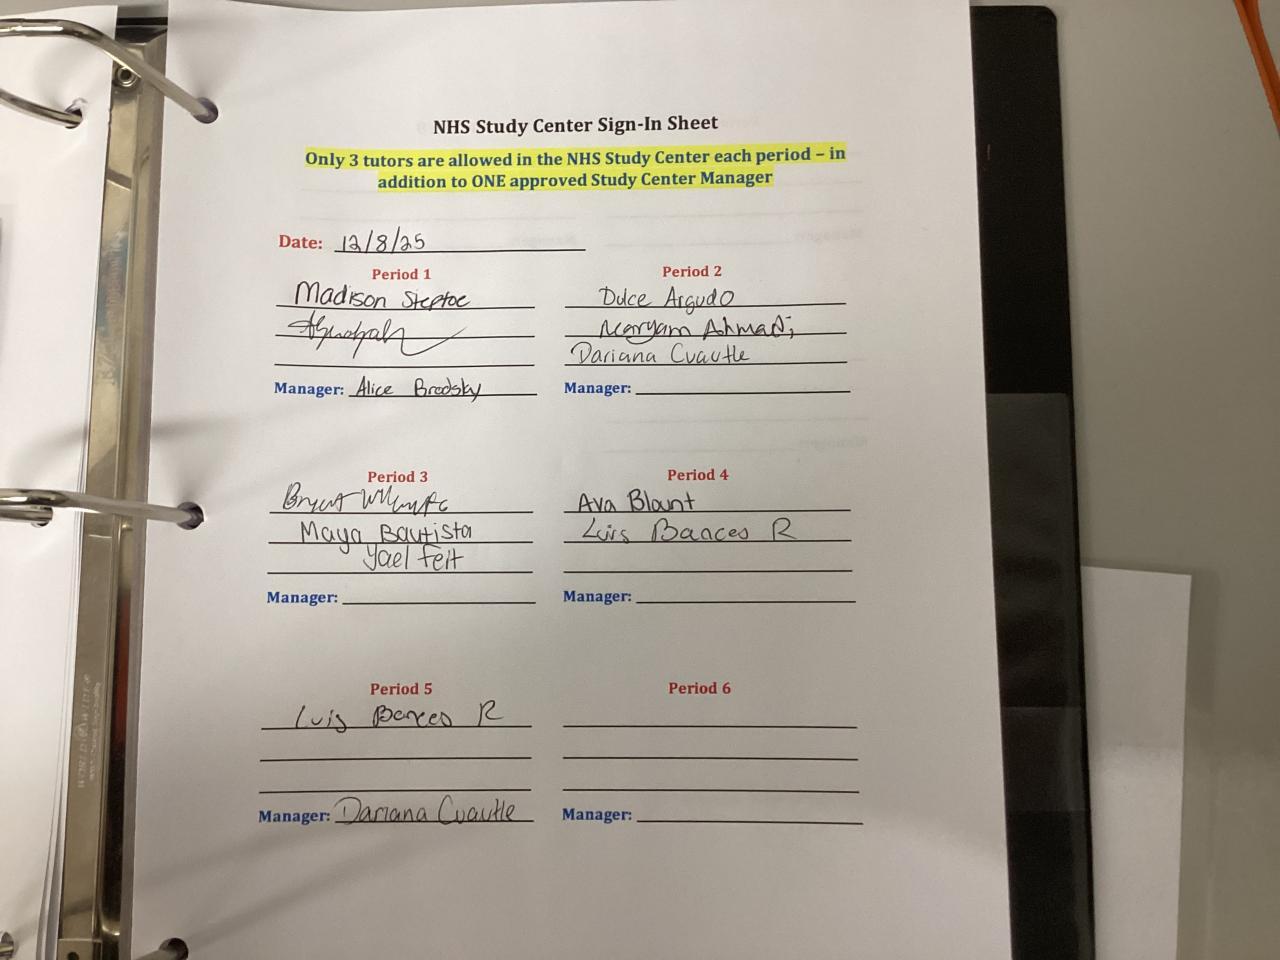 NHS Study Center Sign-In Sheet
Only 3 tutors are allowed in the NHS Study Center each period – in
addition to ONE approved Study Center Manager
Date: 12/8/25
Period 1
Madison Steptoe
Manager: Alice Brodsky
Period 2
Dulce Argudo
Maryam Ahmadi
Dariana Cuautle
Manager:
Period 3
Bryant
Maya Bautista
Yael Feit
Manager:
Period 4
Ava Blount
Luis Bances R
Manager:
Period 5
Luis Bances R
Manager: Dariana Cuautle
Period 6
Manager: